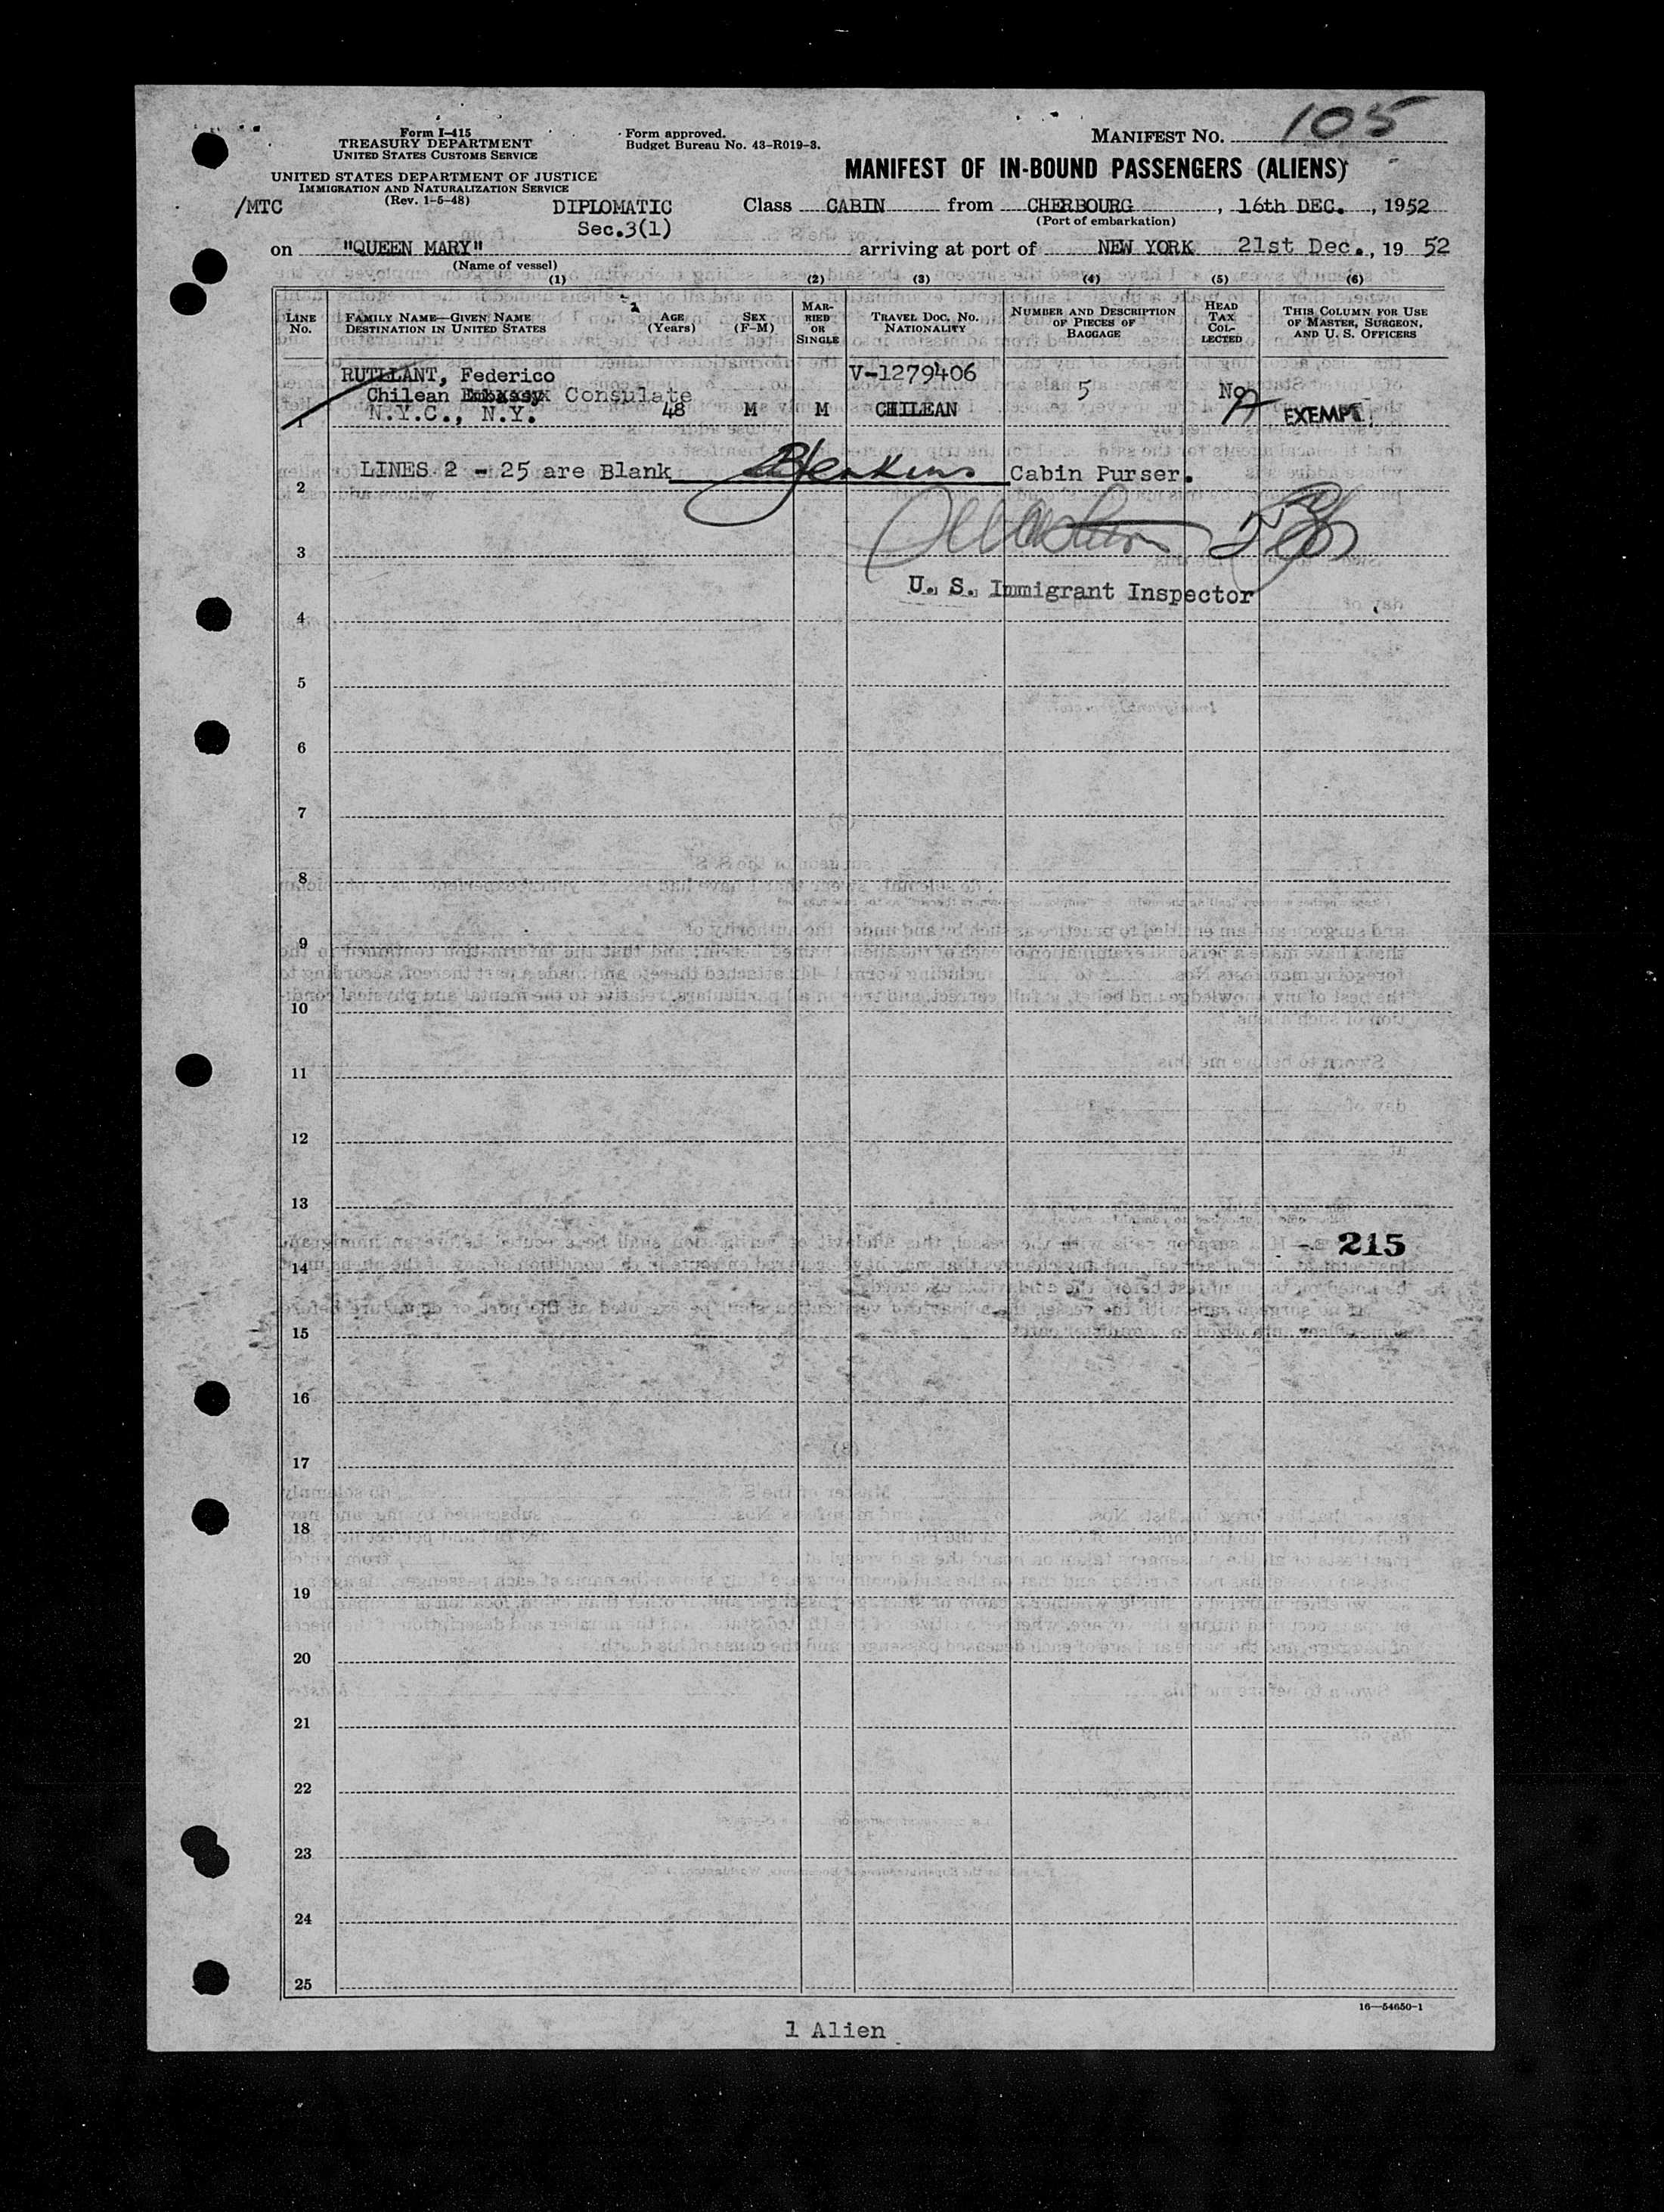 105
Form I-415
TREASURY DEPARTMENT
UNITED STATES CUSTOMS SERVICE
UNITED STATES DEPARTMENT OF JUSTICE
IMMIGRATION AND NATURALIZATION SERVICE
(Rev. 1-5-48)
Form approved.
Budget Bureau No. 43-R019-3.
MANIFEST NO.
MANIFEST OF IN-BOUND PASSENGERS (ALIENS)
/MTC DIPLOMATIC Class CABIN from CHERBOURG, 16th DEC., 1952
Sec.3(1) (Port of embarkation)
on "QUEEN MARY" arriving at port of NEW YORK 21st Dec., 19 52
(Name of vessel)
(1) (2) (3) (4) (5) (6)
LINE No. FAMILY NAME—GIVEN NAME DESTINATION IN UNITED STATES AGE (Years) SEX (F-M) MARRIED OR SINGLE TRAVEL DOC. NO. NATIONALITY NUMBER AND DESCRIPTION OF PIECES OF BAGGAGE HEAD TAX COLLECTED THIS COLUMN FOR USE OF MASTER, SURGEON, AND U. S. OFFICERS
RUTLLANT, Federico V-1279406
Chilean Embassy Consulate 5 No
1 N.Y.C., N.Y. 48 M M CHILEAN EXEMPT
LINES 2 - 25 are Blank Jenkins Cabin Purser.
2
3
U. S. Immigrant Inspector
4
5
6
7
8
9
10
11
12
13
- 215
14
15
16
17
18
19
20
21
22
23
24
25
16—54650-1
1 Alien